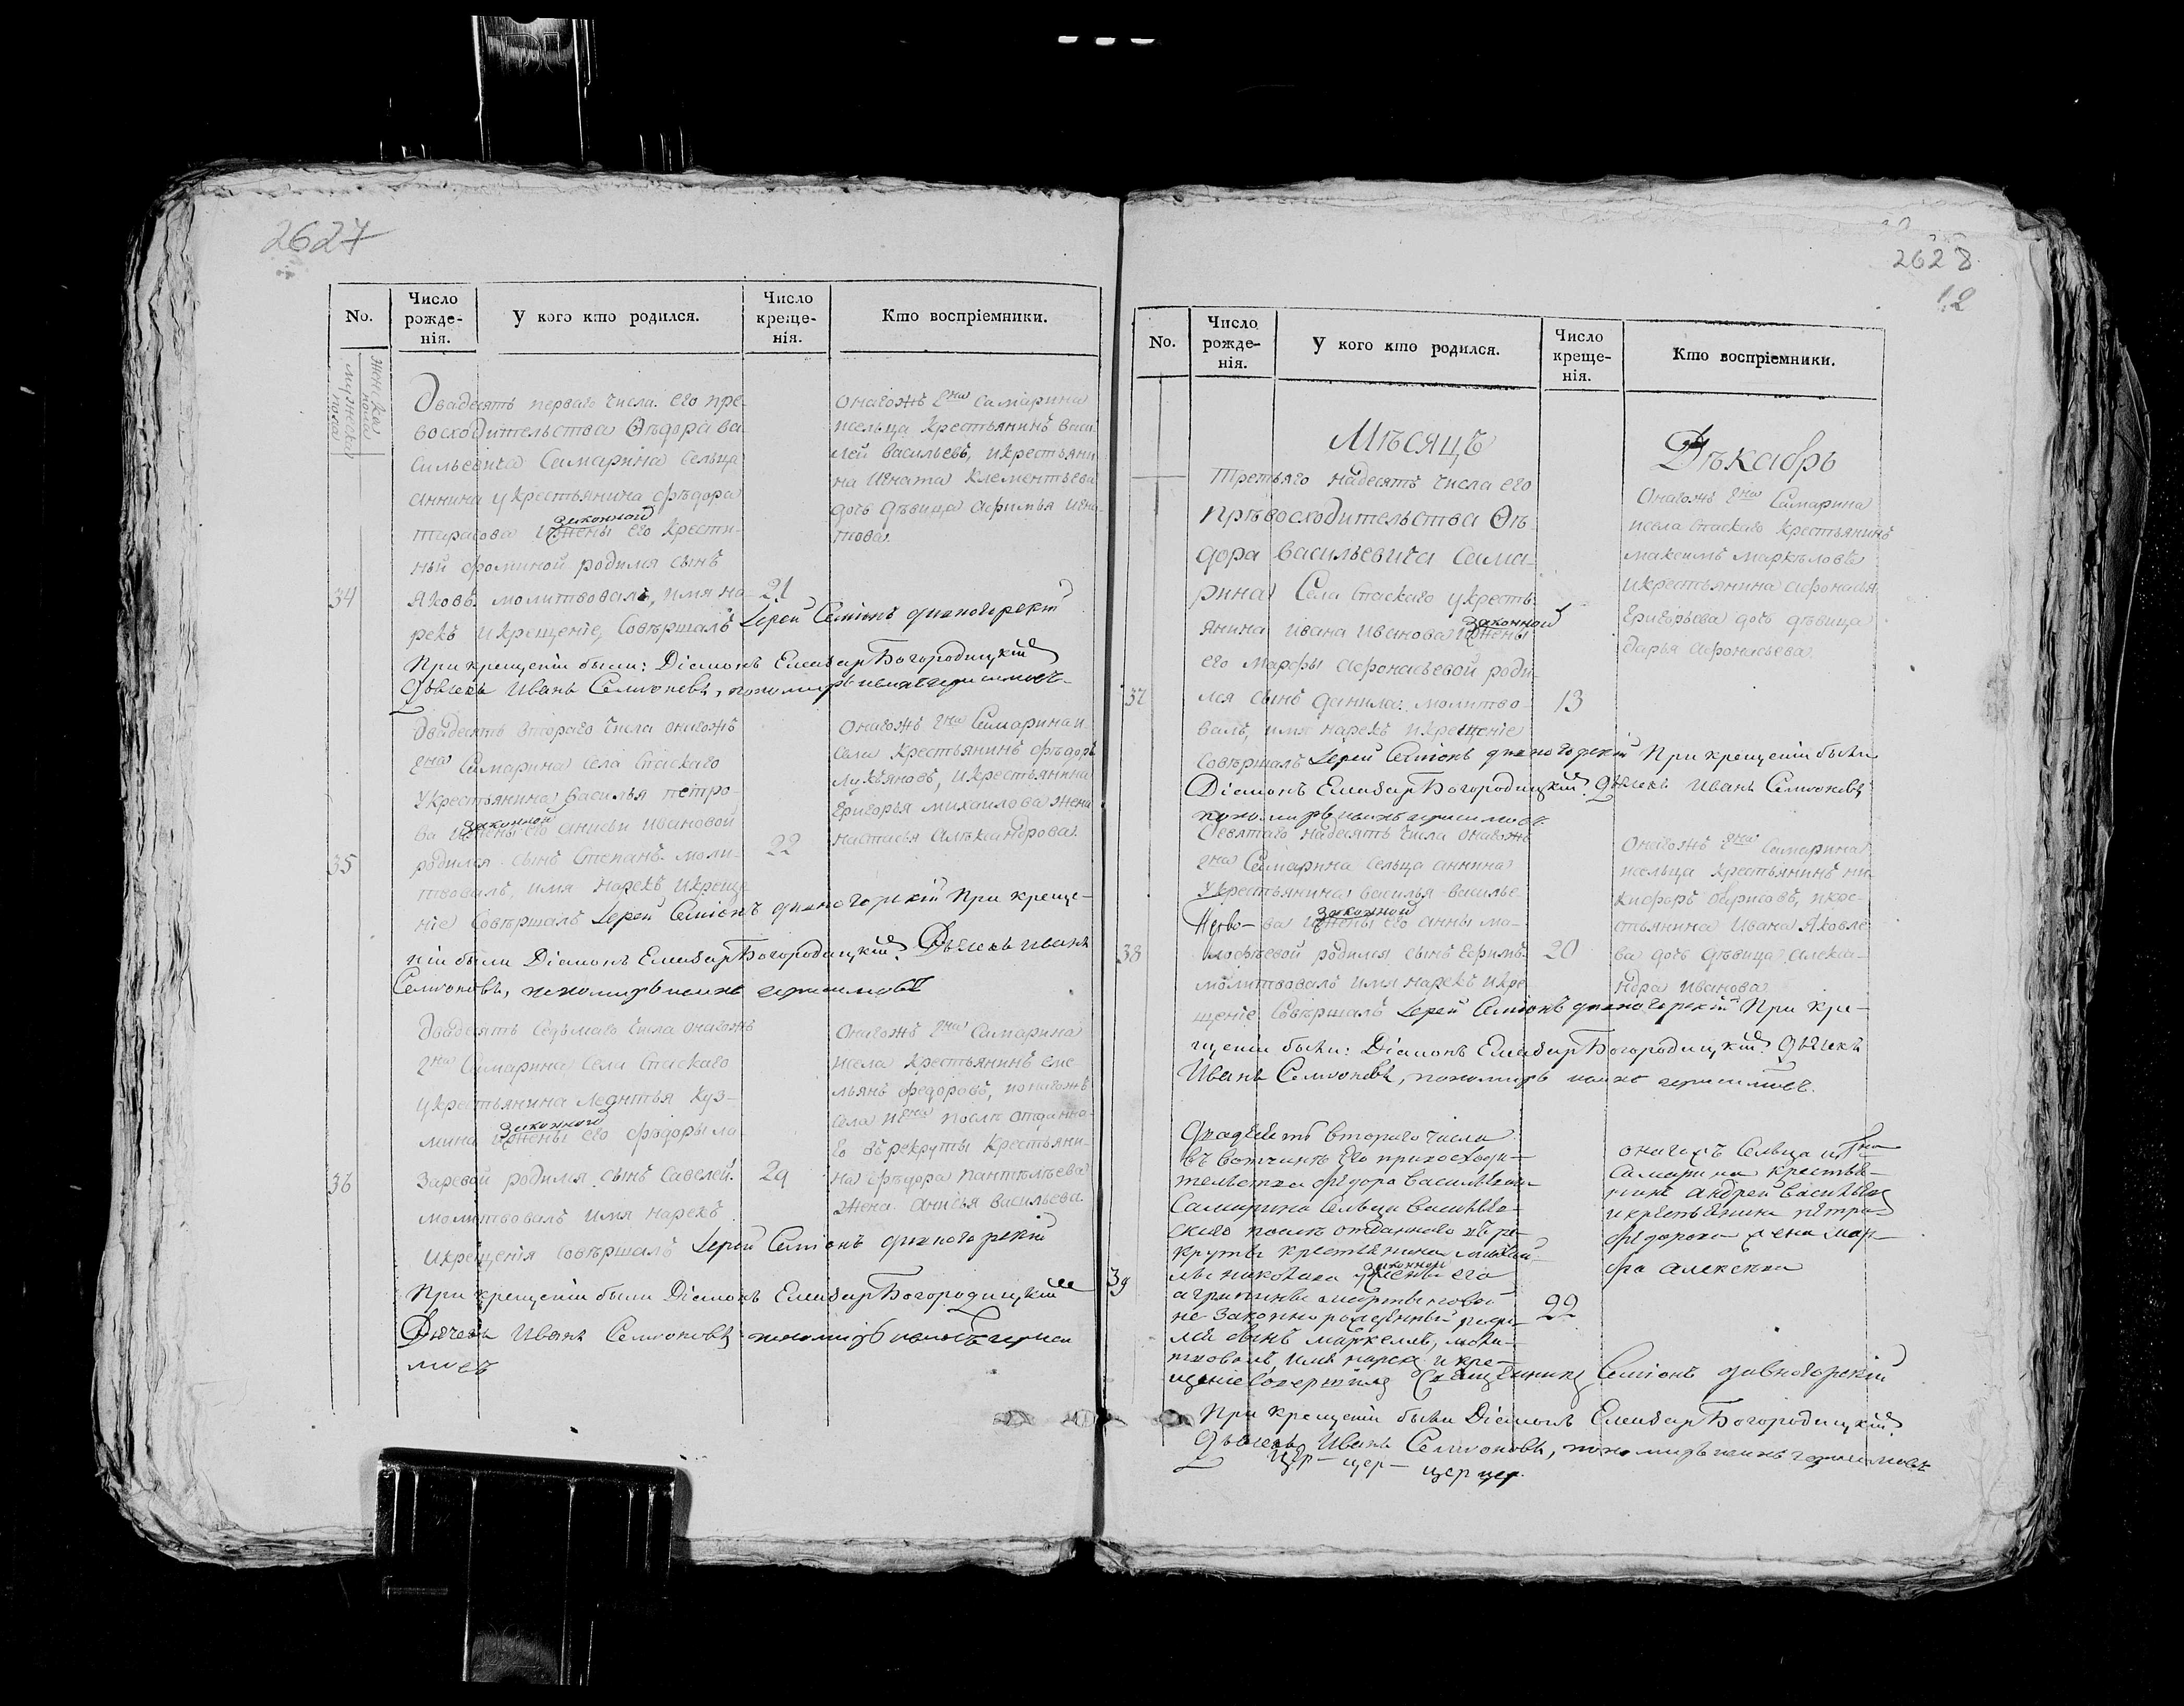 2627
No.
Число рожденія.
У кого кто родился.
Число крещенія.
Кто воспріемники.
женска пола
мужеска пола
Двадесять перваго числа его пре-
восходительства Ѳѣдора ва
сильевича Самарина сельца
аннина укрестьянина фѣдора
тарасова
законной
иженѣі его крести-
ньи фоминой родился сынъ
34
яковъ молитвовалъ, имя на-
21
рекъ икрещеніе, Совѣршалъ Іерей Симіонъ дивногорскій
При крещеніи были: Діаконъ Елеазаръ Богородицкій
Дьячекъ Иванъ Семіоновъ, пономарь
онагожъ гна самарина
исельца крестьянинъ васи
лей васильевъ, икрестьяни
на игната клементьева
дочь дѣвица афимья игна
това.
двадесять втораго числа онагожъ
гна Самарина села спаскаго
укрестьянина василья петро-
законной
ва иженѣі его анисьи ивановой
35
родился сынъ Степанъ моли-
22
твовалъ, имя нарекъ икреще
ніе Совѣршалъ Іерей Симіонъ дивногорскій При креще-
ніи были Діаконъ Елеазаръ Богородицкій. Дьячекъ Иванъ
Семіоновъ, пономарь
онагожъ гна Самарина и
села крестьянинъ фѣдоръ
лукьяновъ, икрестьянина
григорья михаилова жена
настасья алѣксандрова.
двадесять седьмаго числа онагожъ
гна Самарина села спаскаго
укрестьянина леонтья куз-
законной
мина иженѣі его федорьі ла
36
заревой родился сынъ савелей.
29
молитвовалъ имя нарекъ
икрещенія совѣршалъ Іерей Симіонъ дивногорскій
При крещеніи были Діаконъ Елеазаръ Богородицкій
Дьячекъ Иванъ Семіоновъ пономарь
онагожъ гна Самарина
исела крестьянинъ еме
льянъ федоровъ, ионагожъ
села игна послѣ отданна-
го въ рекруты крестьяни-
на фѣдора пантѣлѣева
жена анисья васильева.
2628
12
No.
Число рожденія.
У кого кто родился.
Число крещенія.
Кто воспріемники.
Мѣсяцъ
Дѣкабрь
третьяго надесять числа его
прѣвосходительства Ѳѣ
дора васильевича сама-
рина Села спаскаго укресть-
законной
янина ивана иванова иженѣі
его марфы афонасьевой роди-
37
лся сынъ данила: молитво-
13
валъ, имя нарекъ икрещеніе
совѣршалъ Іерей Симіонъ дивногорскій При крещеніи были
Діаконъ Елеазаръ Богородицкій. Дьячекъ Иванъ Семіоновъ
пономарь
онагожъ гна Самарина
исела спаскаго крестьянинъ
максимъ маркѣловъ
икрестьянина афонасья
григорьева дочь дѣвица
дарья афонасьева
девятаго надесять числа онагожъ
гна Самарина сельца аннина
укрестьянина василья василье
законной
ва иженѣі его анны
38
родился сынъ ефимъ
20
молитвовалъ имя нарекъ икре
щеніе Совѣршалъ Іерей Симіонъ дивногорскій При кре-
щеніи были: Діаконъ Елеазаръ Богородицкій. Дьячекъ
Иванъ Семіоновъ, пономарь
онагожъ гна самарина
исельца крестьянинъ ни
кифоръ борисовъ, икре-
стьянина ивана яковле
ва дочь дѣвица алекса-
ндра иванова
Двадесять втораго числа
въ вотчинѣ Его
Федора Василевича
Самарина сельца
послѣ отданнаго въ ре-
круты крестьянина
законной
жены его
39
агрипины мартыновой
не законно рожденный роди-
22
лся сынъ маркелъ, моли-
твовалъ, имя нарекъ и кре-
щеніе совершилъ Священникъ Симіонъ дивногорскій
При крещеніи были Діаконъ Елеазаръ Богородицкій.
Дьячекъ Иванъ Семіоновъ, пономарь
цер- цер- цер цер.
онагожъ сельца и гна
Самарина крестья-
нинъ андрей васильевъ
и крестьянина петра
федорова жена мар-
фа алексева